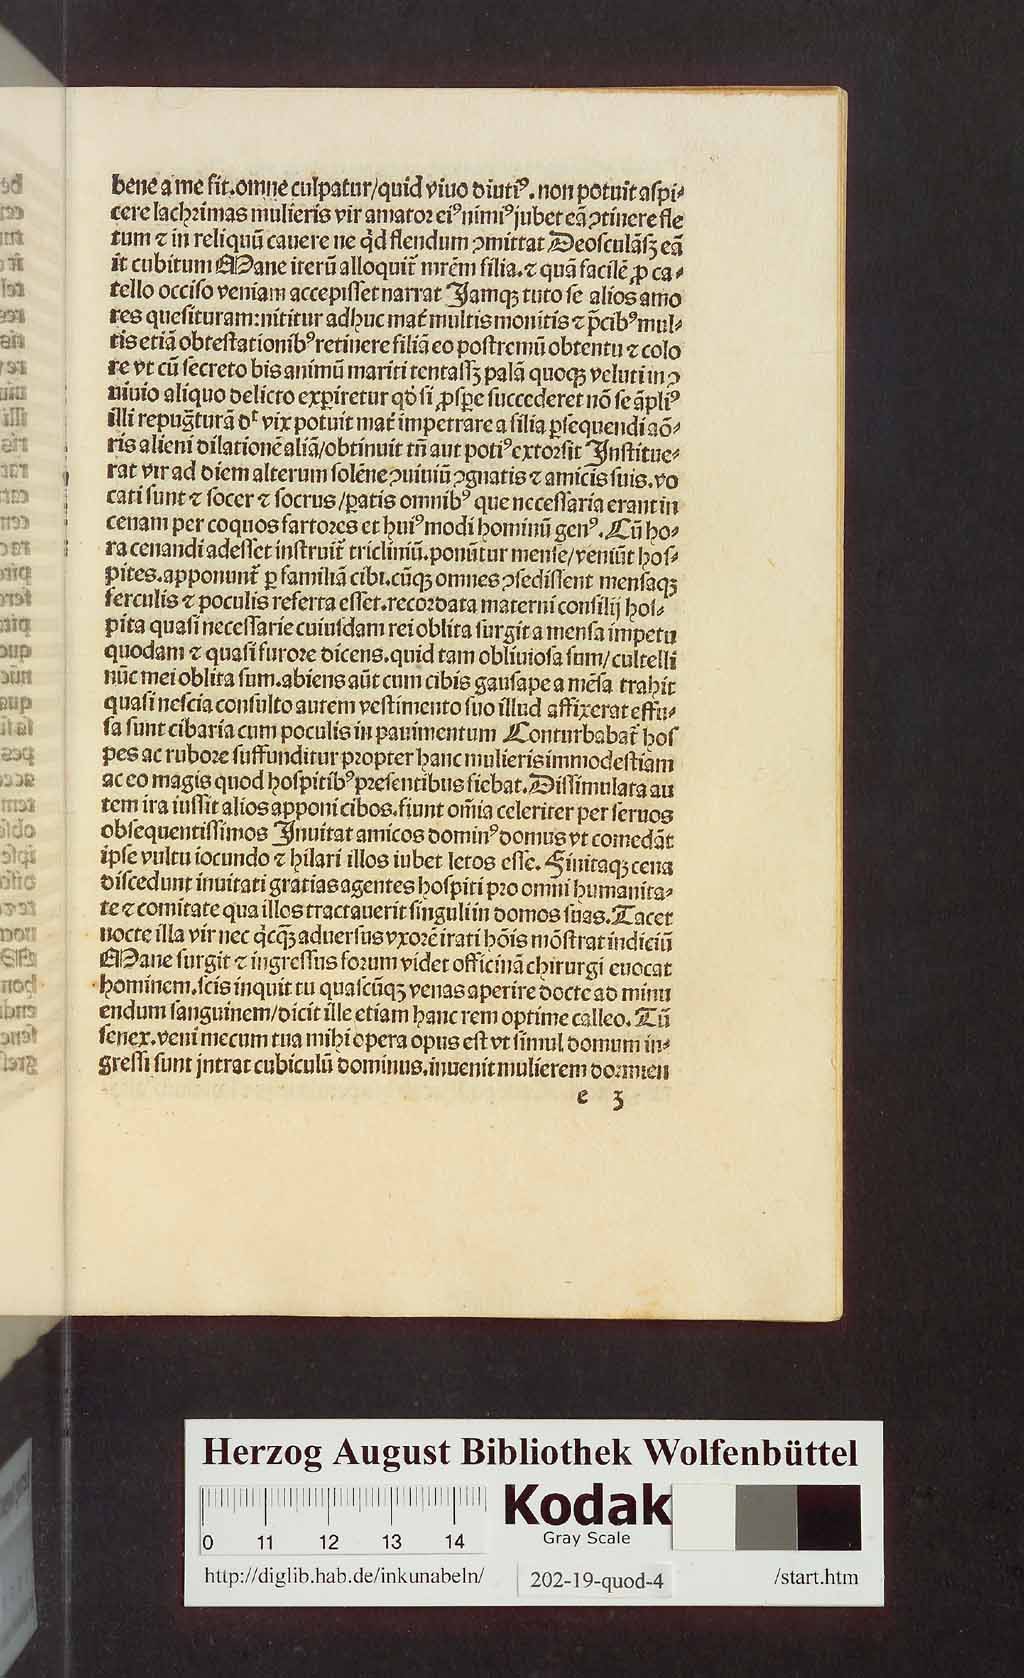 bene a me fit.omne culpatur/quid viuo diutiꝰ.non potuit aspi-
cere lachrimas mulieris vir amator eiꝰ nimiꝰ jubet eā ↄtinere fle
tum ⁊ in reliquū cauere ne qd̓ flendum ↄmittat Deosculāsqꝫ eā
it cubitum Mane iterū alloquit᷑ mrēm filia.⁊ quā facile ꝓ ca-
tello occiso veniam accepisset narrat Jamqꝫ tuto se alios amo
res quesituram:nititur adhuc mat᷑ multis monitis ⁊ p̄cibꝰ mul-
tis etiā obtestationibꝰ retinere filiā eo postremū obtentu ⁊ colo
re vt cū secreto bis animū mariti tentassꝫ palā quoqꝫ veluti in ↄ
uiuio aliquo delicto exꝑiretur qd̓ si ꝓspe succederet nō se āpliꝰ
illi repugturā dt̓ vix potuit mat᷑ impetrare a filia ꝑsequendi aō-
ris alieni dilationē aliā/obtinuit tn̄ aut potiꝰ extorsit Institue-
rat vir ad diem alterum solēne ↄuiuiū ↄgnatis ⁊ amicis suis.vo
cati sunt ⁊ socer ⁊ socrus/ꝑatis omnibꝰ que necessaria erant in
cenam per coquos fartores et huiꝰmodi hominū genꝰ.Cū ho-
ra cenandi adesset instruit᷑ tricliniū.ponūtur mense/veniūt hos-
pites.apponunt᷑ ꝑ familiā cibi.cūqꝫ omnes ↄsedissent mensaqꝫ
ferculis ⁊ poculis referta esset.recordata materni consilij hos-
pita quasi necessarie cuiusdam rei oblita surgit a mensa impetu
quodam ⁊ quasi furore dicens.quid tam obliuiosa sum/cultelli
nūc mei oblita sum.abiens aūt cum cibis gausape a mēsa trahit
quasi nescia consulto autem vestimento suo illud affixerat effu-
sa sunt cibaria cum poculis in pauimentum Conturbabat᷑ hos
pes ac rubore suffunditur propter hanc mulieris immodestiam
ac eo magis quod hospitibꝰ presentibus fiebat.Dissimulata au
tem ira iussit alios apponi cibos.fiunt om̄ia celeriter per seruos
obsequentissimos Inuitat amicos dominꝰ domus vt comedāt
ipse vultu iocundo ⁊ hilari illos iubet letos esse.Finitaqꝫ cena
discedunt inuitati gratias agentes hospiti pro omni humanita-
te ⁊ comitate qua illos tractauerit singuli in domos suas.Tacet
nocte illa vir nec qͥcqͣꝫ aduersus vxorē irati hōis mōstrat indiciū
Mane surgit ⁊ ingressus forum videt officinā chirurgi euocat
hominem.scis inquit tu quascūqꝫ venas aperire docte ad minu
endum sanguinem/dicit ille etiam hanc rem optime calleo.Tū
senex.veni mecum tua mihi opera opus est vt simul domum in-
gressi sunt jntrat cubiculū dominus.inuenit mulierem dormien
e 3
Herzog August Bibliothek Wolfenbüttel
0 11 12 13 14
Kodak
Gray Scale
http://diglib.hab.de/inkunabeln/ 202-19-quod-4 /start.htm